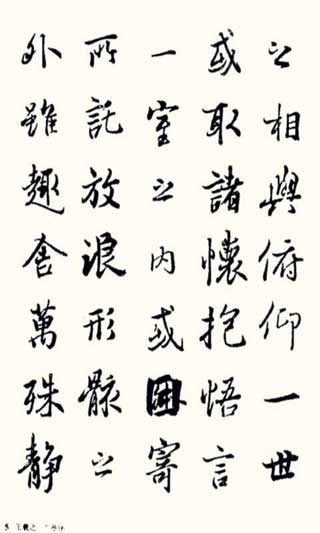 之相與俯仰一世
或取諸懷抱悟言
一室之內或因寄
所託放浪形骸之
外雖趣舍萬殊靜
5 王羲之